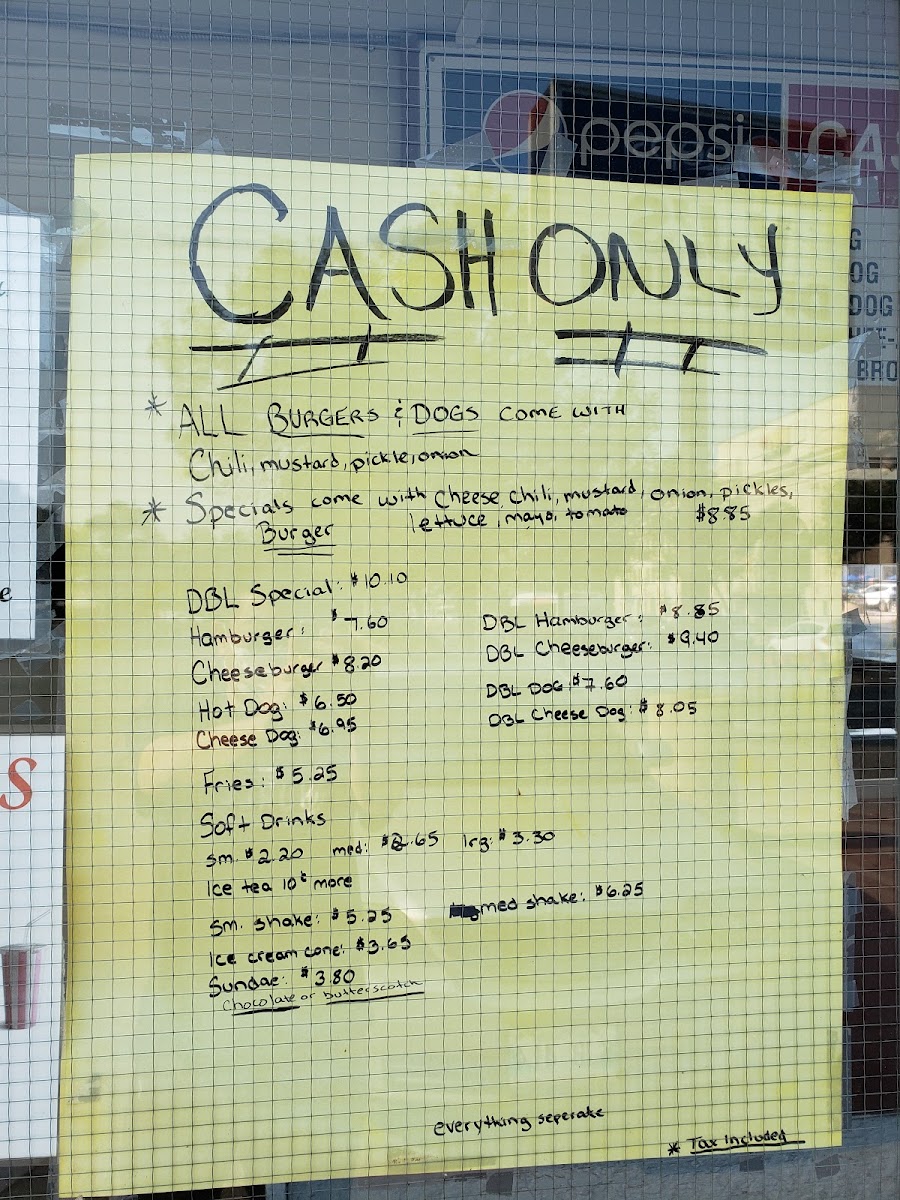 pepsi
CAS
G
OG
DOG
BRO
CASH ONLY
* ALL BURGERS & DOGS COME WITH
Chili, mustard, pickle, onion
* Specials come with Cheese, chili, mustard, onion, pickles,
Burger lettuce, mayo, tomato $8.85
DBL Special: $10.10
Hamburger: $7.60 DBL Hamburger: $8.85
Cheeseburger $8.20 DBL Cheeseburger: $9.40
Hot Dog: $6.50 DBL DOG $7.60
Cheese Dog: $6.95 DBL Cheese Dog: $8.05
Fries: $5.25
Soft Drinks
sm. $2.20 med: $2.65 lrg: $3.30
Ice tea 10¢ more
Sm. shake: $5.25 med shake: $6.25
Ice cream cone: $3.65
Sundae: $3.80
Chocolate or butterscotch
everything seperate
* Tax Included
e
S